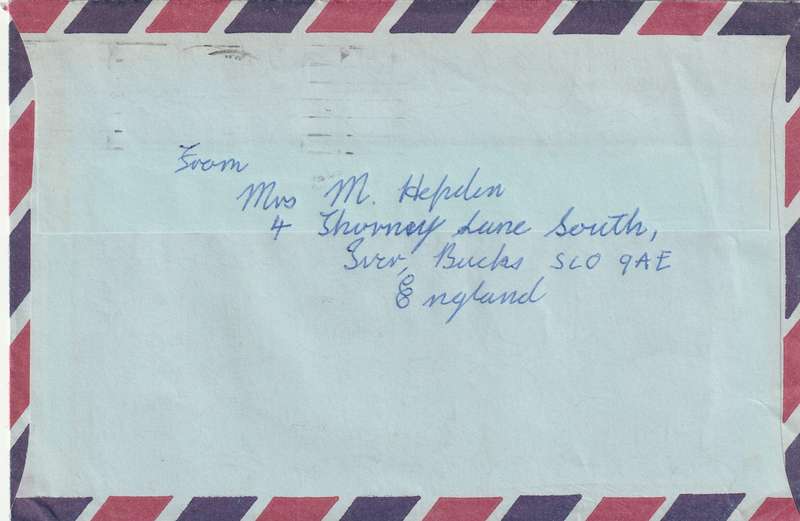 From
Mrs M. Hepden
4 Thorney Lane South,
Iver, Bucks SLO 9AE
England